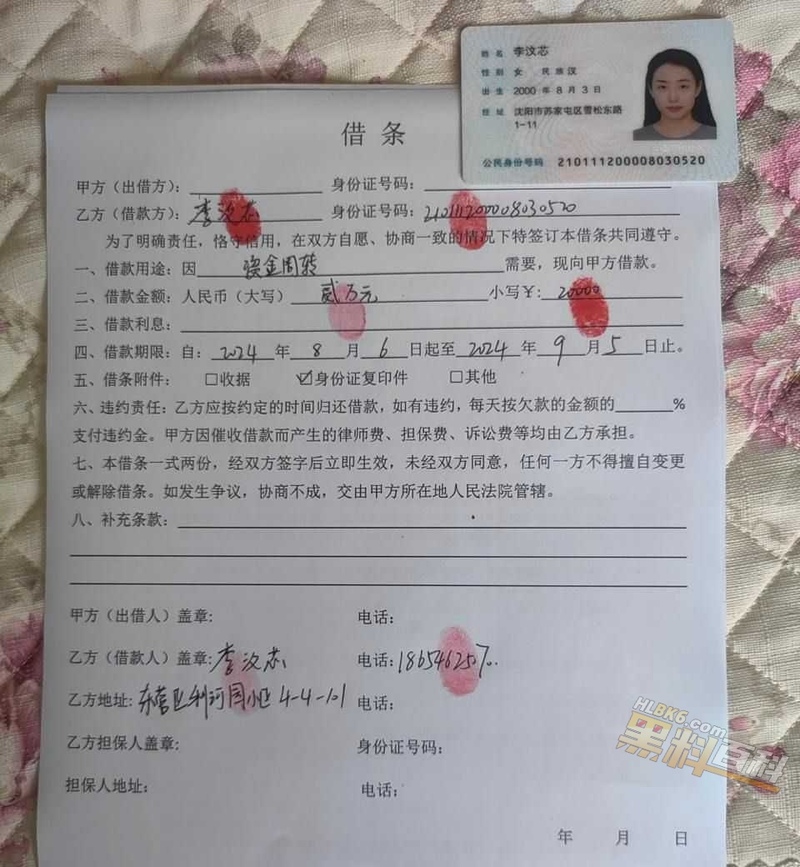 姓名 [略]
性别 女 民族 汉
出生 [略]
住址 [略]
公民身份号码 [略]
借条
甲方（出借方）： 身份证号码：
乙方（借款方）：[略] 身份证号码：[略]
为了明确责任，恪守信用，在双方自愿、协商一致的情况下特签订本借条共同遵守。
一、借款用途：因 资金周转 需要，现向甲方借款。
二、借款金额：人民币（大写） 贰万元 小写￥：20000
三、借款利息：
四、借款期限：自：2024年8月6日起至2024年9月5日止。
五、借条附件： □收据 ☑身份证复印件 □其他
六、违约责任：乙方应按约定的时间归还借款，如有违约，每天按欠款的金额的______%
支付违约金。甲方因催收借款而产生的律师费、担保费、诉讼费等均由乙方承担。
七、本借条一式两份，经双方签字后立即生效，未经双方同意，任何一方不得擅自变更
或解除借条。如发生争议，协商不成，交由甲方所在地人民法院管辖。
八、补充条款：
甲方（出借人）盖章： 电话：
乙方（借款人）盖章：[略] 电话：[略]
乙方地址：[略] 电话：
乙方担保人盖章： 身份证号码：
担保人地址： 电话：
年 月 日
HLBK6.com
黑料百科